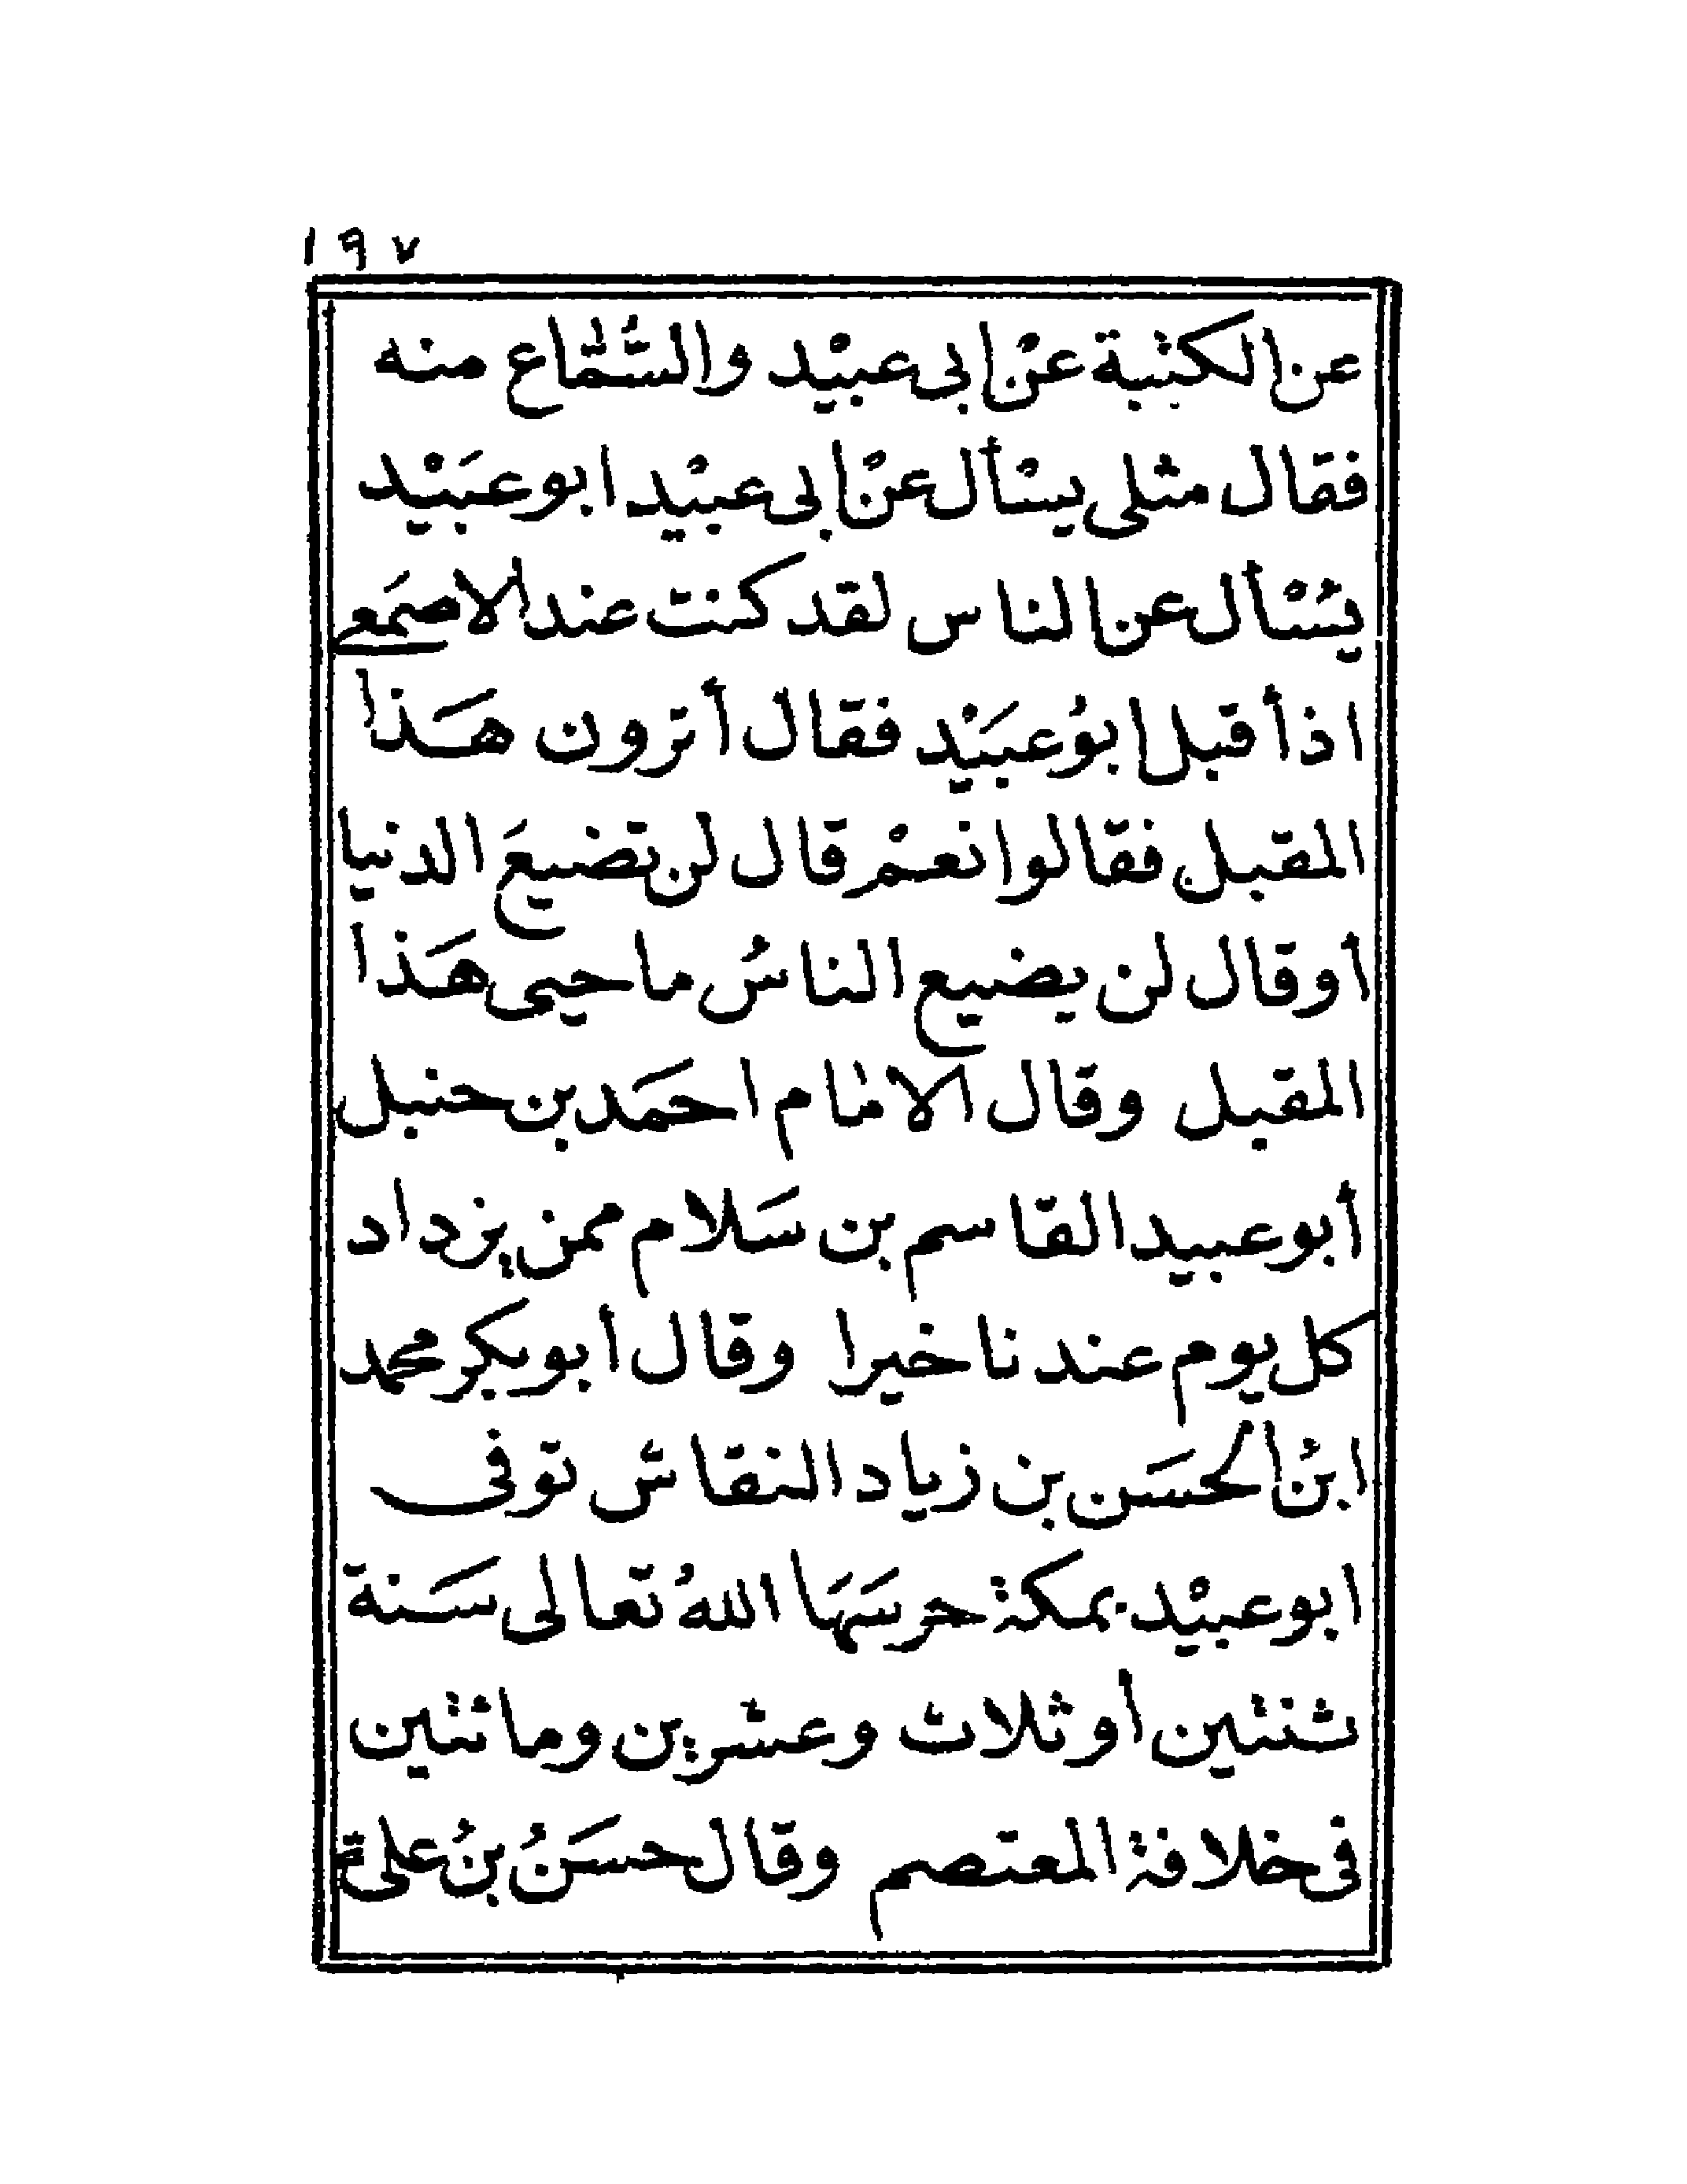 ١٩٧
عن الكتبة عنْ ابى عبيْد والسَّمَّاع منه
فقال مثلى يسْأل عنْ ابى عبيْد ابو عبَيْد
يُسْأل عن الناس لقد كنت عند الاصمَعى
اذ أقبل ابوُ عبَيْد فقال أترون هَذا
المقبل فقالوا نعمْ قال لن تضيعَ الدنيا
أو قال لن يضيع الناسُ ما حيى هَذا
المقبل وقال الامام احمَد بن حنبل
أبو عبيد القاسم بن سَلام ممن يزداد
كل يوم عندنا خيرا وقال أبو بكر محمد
ابنُ الحسَن بن زياد النقاش توفى
ابو عبيْد بمكة حرسَهَا اللهُ تعالى سَنة
ثنتين أو ثلاث وعشرين ومائتين
فى خلافة المعتصم وقال حسَنُ بنُ على